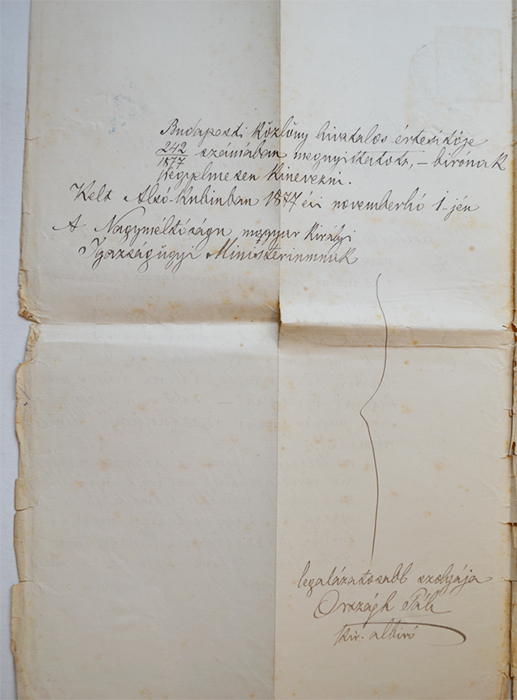 Budapesti közlöny hivatalos értesitője
242/1877 számában megnyittatott, – birónak
kegyelmesen kinevezni.
Kelt Alsó-kubinban 1877 évi novemberhó 1. jén
A Nagyméltóságu magyar királyi
Igazságügyi Ministeriumnak
legalázatosabb szolgája
Országh Pál
kir. albiró